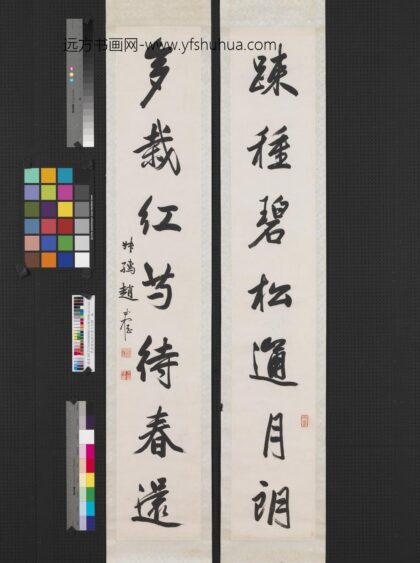 远方书画网-www.yfshuhua.com
踈種碧松通月朗
多栽紅芍待春還
叔孺趙